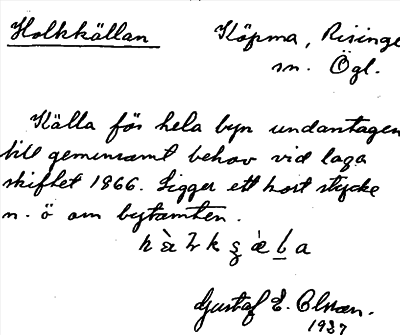 Holkkällan Köpma, Risinge
sn. Ögl.
Källa för hela byn undantagen
till gemensamt behov vid laga
skiftet 1866. Ligger ett kort stycke
n. ö om bytomten.
Gustaf E. Olsson.
1937